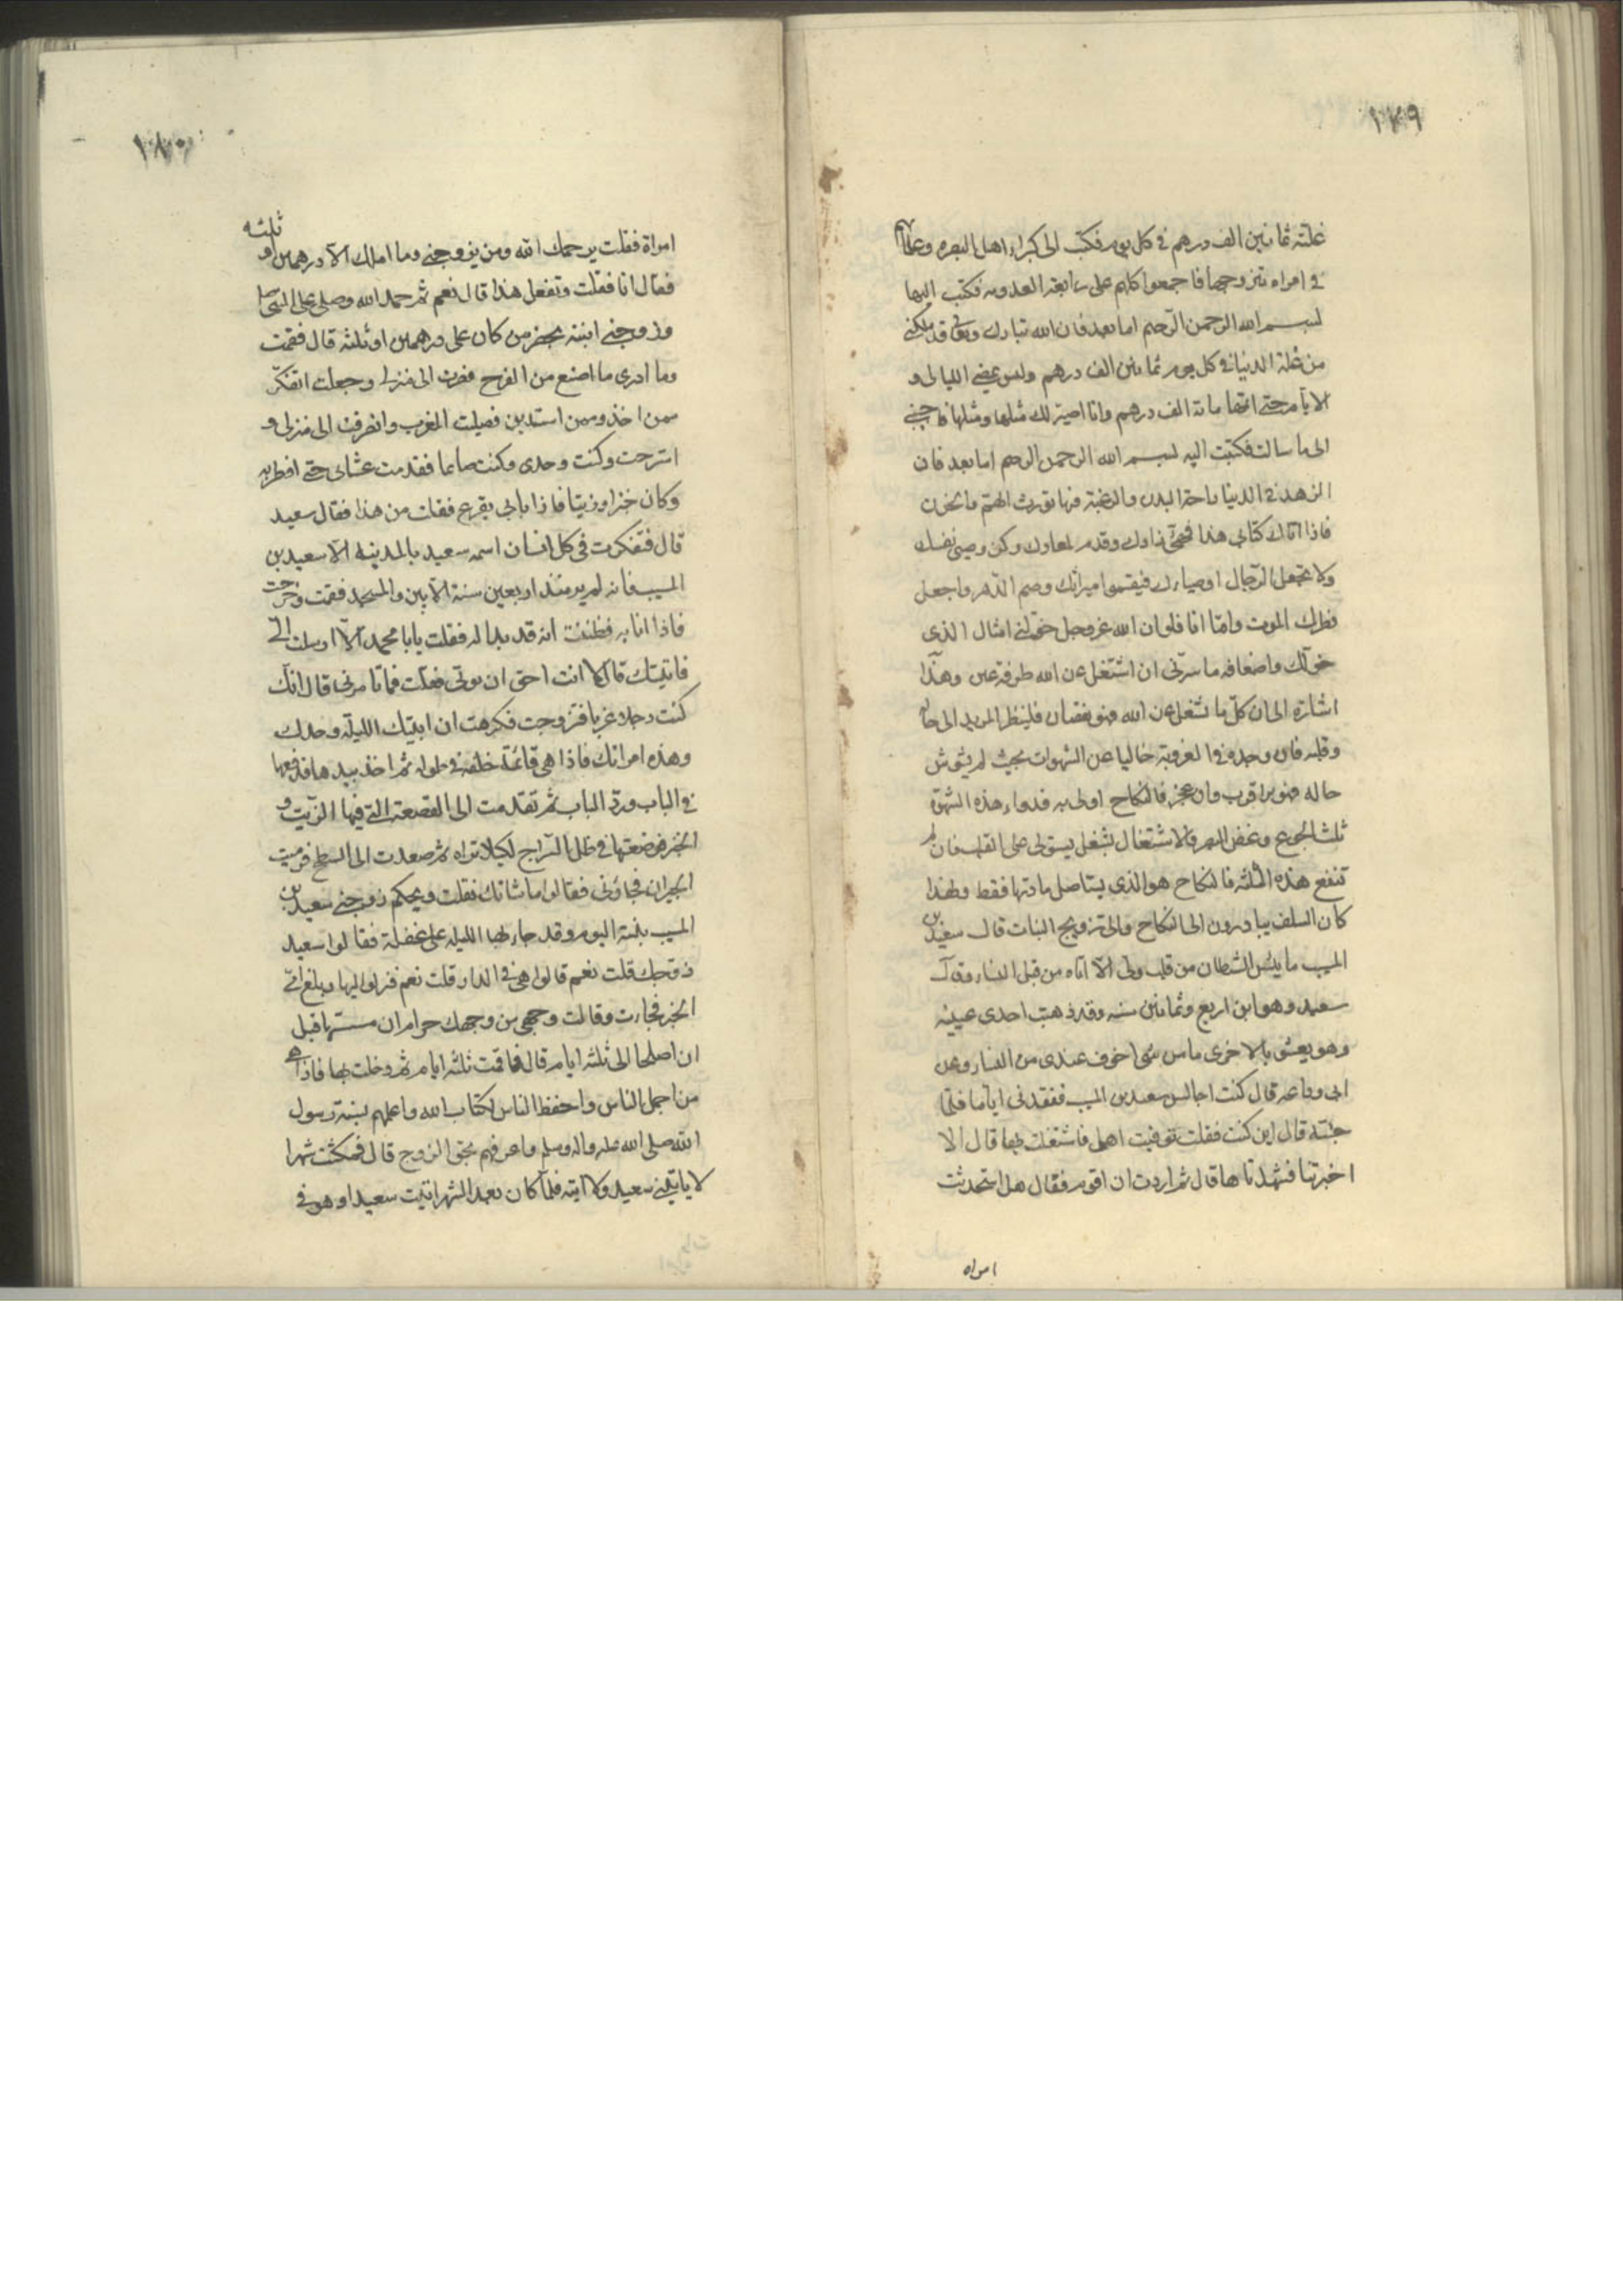 ١٧٩
غلته ثمانين الف درهم في كل يوم فكتب الى كبراء اهل البصره وعلمائها
في امراه يتزوجها فاجمعوا كلهم على رابعة العدويه فكتب اليها
بسم الله الرحمن الرحيم اما بعد فان الله تبارك وتعالى قد ملكني
من غلة الدنيا في كل يوم ثمانين الف درهم وليس يمضي الليالي و
الايام حتى اتمها مائة الف درهم وانا اصير لك مثلها ومثلها فاجيبني
الى ما سالت فكتبت اليه بسم الله الرحمن الرحيم اما بعد فان
الزهد في الدنيا راحة البدن والرغبة فيها تورث الهم والحزن
فاذا اتاك كتابي هذا فهيئ زادك وقدم لمعادك وكن وصي نفسك
ولا تجعل الرجال اوصياءك فيقسموا ميراثك وصم الدهر واجعل
فطرك الموت واما انا فلو ان الله عز وجل خولني امثال الذي
خولك واضعافه ما سرني ان اشتغل عن الله طرفة عين وهذا
اشاره الى ان كل ما شغل عن الله فهو نقصان فلينظر المريد الى حاله
وقلبه فان وجده في العزوبة خاليا عن الشهوات بحيث لم يشوش
حاله فهو اقرب وان عجز فالنكاح اولى به فدواء هذه الشهوة
ثلث الجوع وغض البصر والاشتغال بشغل يستولى على القلب فان لم
تنفع هذه الثلثه فالنكاح هو الذي يستاصل مادتها فقط ولهذا
كان السلف يبادرون الى النكاح والى تزويج البنات قال سعيد بن
المسيب ما يئس الشيطان من قلب ولى الا اتاه من قبل النساء وقال
سعيد وهو ابن اربع وثمانين سنه وقد ذهبت احدى عينيه
وهو يعشو بالاخرى ما من شئ اخوف عندى من النساء وعن
ابى وداعه قال كنت اجالس سعيد بن المسيب ففقدنى اياما فلما
جئته قال اين كنت فقلت توفيت اهلى فاشتغلت بها قال الا
اخبرتنا فشهدناها قال ثم اردت ان اقوم فقال هل استحدثت
امراه
١٨٠
امراة فقلت يرحمك الله ومن يزوجني وما املك الا درهمين او ثلثه
فقال انا فقلت وتفعل هذا قال نعم ثم حمد الله وصلى على النبي
وزوجني ابنته بحضر من كان على درهمين او ثلثه قال فقمت
وما ادرى ما اصنع من الفرح فصرت الى منزلى وجعلت اتفكر
ممن اخذ وممن استدين فصليت المغرب وانصرفت الى منزلى و
استرحت وكنت وحدى وكنت صائما فقدمت عشائى حتى افطر به
وكان خبزا وزيتا فاذا بابى يقرع فقلت من هذا فقال سعيد
قال فتفكرت في كل انسان اسمه سعيد بالمدينه الا سعيد بن
المسيب فانه لم ير منذ اربعين سنة الا بين والمسجد فقمت وخرجت
فاذا انا به فظننت انه قد بدا له فقلت يابا محمد الا ارسلت الى
فاتيتك قال لا انت احق ان يؤتى فقلت فما تامرنى قال انك
كنت رجلا عزبا فتزوجت فكرهت ان ابيتك الليلة وحدك
وهذه امراتك فاذا هى قائمة خلفه في طوله ثم اخذ بيدها فدفعها
في الباب ورد الباب ثم تقدمت الى القصعة التي فيها الزيت و
الخبز فوضعتها في ظل السراج لكيلا تراه ثم صعدت الى السطح فرميت
الجيران فجاؤنى فقالوا ما شانك فقلت ويحكم زوجني سعيد بن
المسيب بنته اليوم وقد جاء بها الليله على غفلة فقالوا سعيد
زوجك قلت نعم قالوا هى في الدار قلت نعم فنزلوا اليها وبلغ امى
الخبز فجاءت وقالت وجهى من وجهك حرام ان مسستها قبل
ان اصلحها الى ثلثه ايام قال فاقمت ثلثه ايام ثم دخلت بها فاذا هى
من اجمل الناس واحفظ الناس لكتاب الله واعلمهم بسنة رسول
الله صلى الله عليه واله وسلم واعرفهم بحق الزوج قال فمكثت شهرا
لا ياتينى سعيد ولا اتيه فلما كان بعد الشهر اتيت سعيدا وهو في